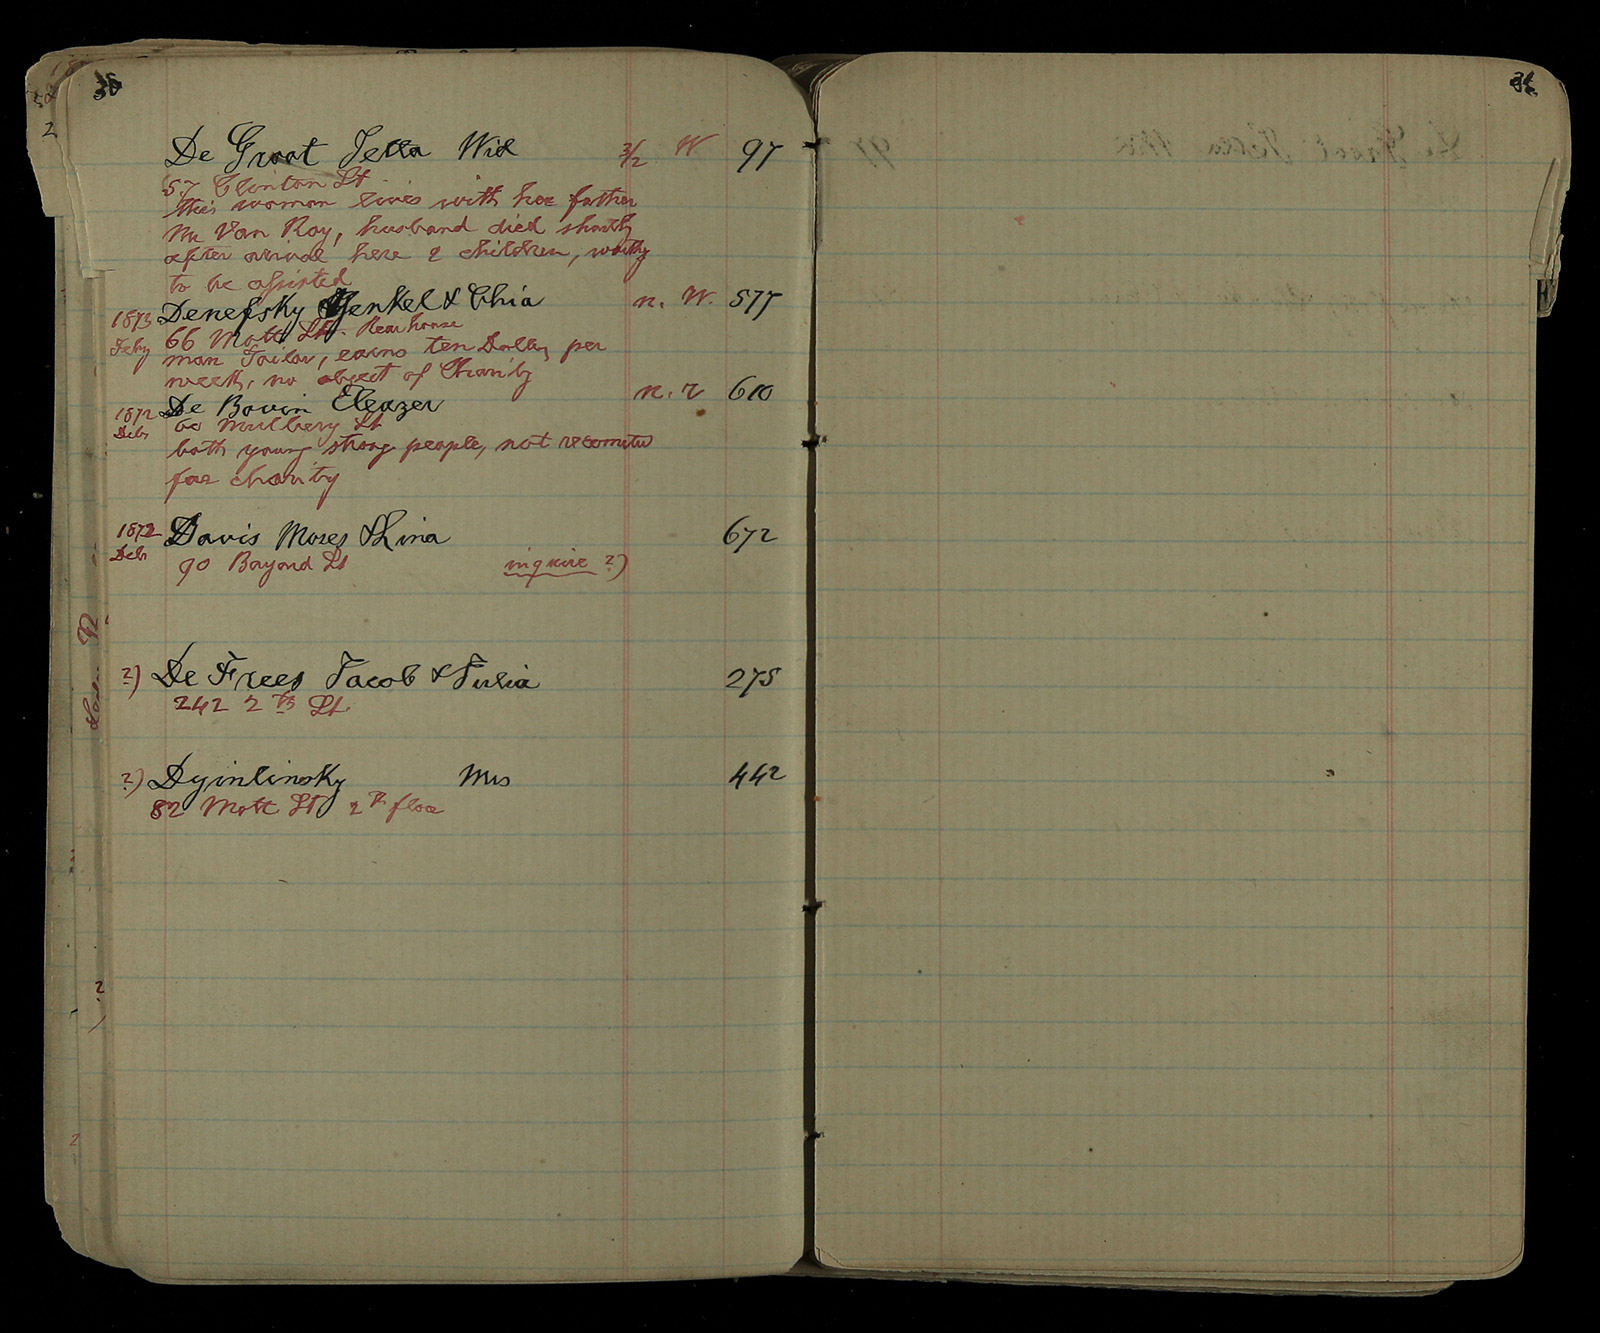 De Groot Jetta Wid 3/2 W 97
57 Clinton St
this woman lives with her father
Mr Van Roy, husband died shortly
after arival here 2 children, worthy
to be assisted
Denefsky Henkel & Chia n. W. 577
1873 66 Mott St. Rear house
Feby man Tailor, earns ten Dollars per
week, no object of Charity
De Bovin Eleazer n. r 610
1872 Mulbery St
Debr both young strong people, not recomited
for charity
1872 Davis Moses & Lina 672
Debr 90 Bayard St inquire ?)
?) De Frees Jacob & Julia 275
242 2th St.
?) Dyinlinsky Mrs 442
82 Mott St 2th floor